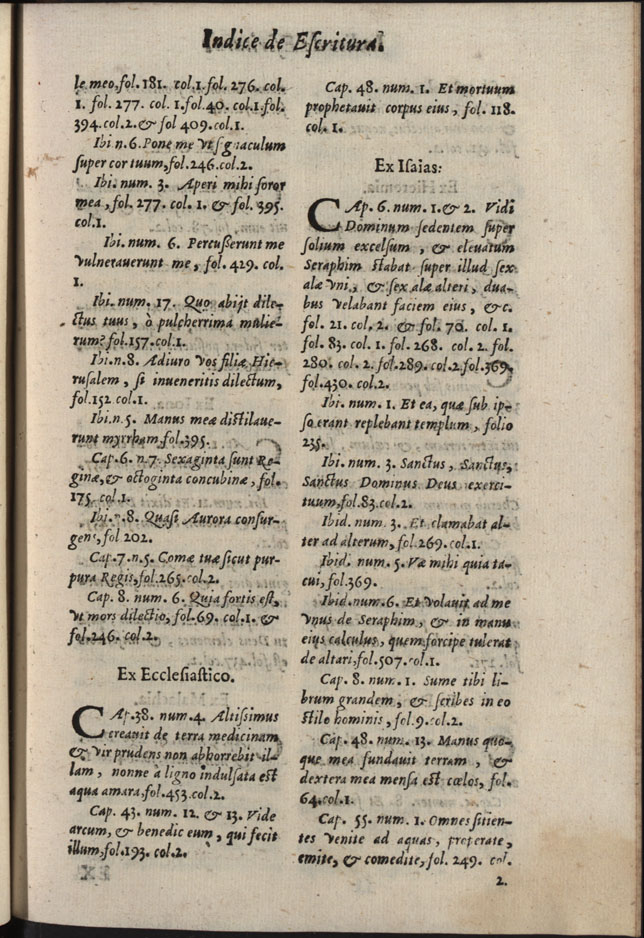 Indice de Escritura.
le meo, fol. 181. col. 1. fol. 276. col.
1. fol. 277. col. 1. fol. 40. col. 1. fol.
394. col. 2. & fol 409. col. 1.
Ibi n. 6. Pone me vt signaculum
super cor tuum, fol. 246. col. 2.
Ibi. num. 3. Aperi mihi soror
mea, fol. 277. col. 1. & fol. 395.
col. 1.
Ibi. num. 6. Percusserunt me
vulnerauerunt me, fol. 429. col.
1.
Ibi. num. 17. Quo abijt dile-
ctus tuus, ò pulcherrima mulie-
rum? fol. 157. col. 1.
Ibi. n. 8. Adiuro vos filiæ Hie-
rusalem, si inueneritis dilectum,
fol. 152. col. 1.
Ibi. n. 5. Manus meæ distilaue-
runt myrrham, fol. 395.
Cap. 6. n. 7. Sexaginta sunt Re-
ginæ, & octoginta concubinæ, fol.
175. col. 1.
Ibi. n. 8. Quasi Aurora consur-
gens, fol 202.
Cap. 7. n. 5. Comæ tuæ sicut pur-
pura Regis, fol. 265. col. 2.
Cap. 8. num. 6. Quia fortis est,
vt mors dilectio, fol. 69. col. 1. &
fol. 246. col. 2.
Ex Ecclesiastico.
CAp. 38. num. 4. Altissimus
creauit de terra medicinam
& vir prudens non abhorrebit il-
lam, nonne à ligno indulsata est
aqua amara, fol. 453. col. 2.
Cap. 43. num. 12. & 13. Vide
arcum, & benedic eum, qui fecit
illum, fol. 193. col. 2.
Cap. 48. num. 1. Et mortuum
prophetauit corpus eius, fol. 118.
col. 1.
Ex Isaias.
CAp. 6. num. 1. & 2. Vidi
Dominum sedentem super
solium excelsum, & eleuatum
Seraphim stabat super illud sex
alæ vni, & sex alæ alteri, dua-
bus velabant faciem eius, &c.
fol. 21. col. 2. & fol. 70. col. 1.
fol. 83. col. 1. fol. 268. col. 2. fol.
280. col. 2. fol. 289. col. 2. fol. 369.
fol. 430. col. 2.
Ibi. num. 1. Et ea, quæ sub ip-
so erant replebant templum, folio
235.
Ibi. num. 3. Sanctus, Sanctus,
Sanctus Dominus Deus exerci-
tuum, fol. 83. col. 2.
Ibid. num. 3. Et clamabat al-
ter ad alterum, fol. 269. col. 1.
Ibid. num. 5. Væ mihi quia ta-
cui, fol. 369.
Ibid. num. 6. Et volauit ad me
vnus de Seraphim, & in manu
eius calculus, quem forcipe tulerat
de altari, fol. 507. col. 1.
Cap. 8. num. 1. Sume tibi li-
brum grandem, & scribes in eo
stilo hominis, fol. 9. col. 2.
Cap. 48. num. 13. Manus quo-
que mea fundauit terram, &
dextera mea mensa est cœlos, fol.
64. col. 1.
Cap. 55. num. 1. Omnes sitien-
tes venite ad aquas, properate,
emite, & comedite, fol. 249. col.
2.